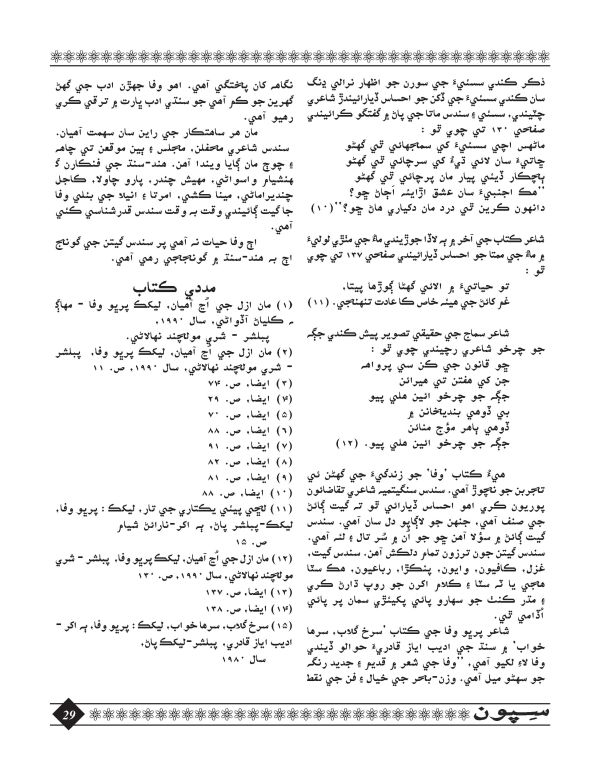 ذڪر ڪندي سسئيءَ جي سورن جو اظهار نرالي ڍنگ
سان ڪندي سسئيءَ جي ڏکن جو احساس ڏياريندڙ شاعري
چٽيندي، سسئي ۽ سندس ماتا جي پاڻ ۾ گفتگو ڪرائيندي
صفحي ١٣٠ تي چوي ٿو :
ماڻهس اچي سسئيءَ کي سمجهائي ٿي گهڻو
ڇاتيءَ سان لائي ڌيءُ کي سرچائي ٿي گهڻو
ٻاچڪار ڏيئي پيار مان پرچائي ٿي گهڻو
”هڪ اجنبيءَ سان عشق اڙاينہ اُڄاڻ ڇو؟
دانهون ڪرين ٿي درد مان دکياري هاڻ ڇو؟“(١٠)
شاعر ڪتاب جي آخر ۾ ٻہ لاڏا جوڙيندي ماءُ جي مٺڙي لوليءَ
۾ ماءُ جي ممتا جو احساس ڏياريندي صفحي ١٣٧ تي چوي
ٿو :
تو حياتيءَ ۾ الائي گهڻا ڳوڙها پيتا،
غم کائڻ جي مينہ خاص ڪا عادت تنهنجي. (١١)
شاعر سماج جي حقيقي تصوير پيش ڪندي جڳہ
جو چرخو شاعري رچيندي چوي ٿو :
ڇو قانون جي ڪن سي پرواهہ
جن کي مفتن تي ميرائن
جڳہ جو چرخو ائين هلي پيو
بي ڏوهي بنديخانن ۾
ڏوهي ٻاهر مؤج منائن
جڳہ جو چرخو ائين هلي پيو. (١٢)
هيءُ ڪتاب ’وفا‘ جو زندگيءَ جي گهڻن ئي
تجربن جو نچوڙ آهي. سندس سنگيتميہ شاعري تقاضائون
پوريون ڪري اهو احساس ڏياراڻي ٿو تہ گيت ڳائڻ
جي صنف آهي، جنهن جو لاڳاپو دل سان آهي. سندس
گيت ڳائڻ ۾ سؤلا آهن ڇو جو اُن ۾ سُر تال ۽ لئہ آهي.
سندس گيتن جون ترزون تمام دلڪش آهن. سندس گيت،
غزل، ڪافيون، وايون، پنڪڙا، رباعيون، هڪ سٽا
هجي يا ٽہ سٽا ۽ ڪلام اکرن جو روپ ڌارڻ ڪري
۽ مڌر ڪنٺ جو سهارو پائي پکيئڙي سمان پر پائي
اُڏامي ٿي.
شاعر پريو وفا جي ڪتاب ’سرخ گلاب، سرها
خواب‘ ۾ سنڌ جي اديب اياز قادريءَ حوالو ڏيندي
وفا لاءِ لکيو آهي، ”وفا جي شعر ۾ قديم ۽ جديد رنگہ
جو سهڻو ميل آهي. وزن-بحر جي خيال ۽ فن جي نقط
نگاهہ کان پختگي آهي. اهو وفا جهڙن ادب جي گهڻ
گهرين جو ڪم آهي جو سنڌي ادب ڀارت ۾ ترقي ڪري
رهيو آهي.
مان هر ساهتڪار جي راين سان سهمت آهيان.
سندس شاعري محفلن، مجلس ۽ ٻين موقعن تي چاهہ
۽ چوڄ مان ڳايا ويندا آهن. هند-سنڌ جي فنڪارن گ
هنشيام واسواڻي، مهيش چندر، پارو چاولا، ڪاجل
چنديراماڻي، مينا ڪشي، امرتا ۽ انيلا جي بنلي وفا
جا گيت ڳائيندي وقت بہ وقت سندس قدرشناسي ڪئي
آهي.
اڄ وفا حيات نہ آهي پر سندس گيتن جي گونڄ
اڄ بہ هند-سنڌ ۾ گونججي رهي آهي.
مددي ڪتاب
(١) مان ازل جي اُڃ آهيان، ليکڪ پريو وفا - مهاڳ
ر ڪلياڻ آڏواڻي، سال ١٩٩٠،
پبلشر - شري مولچند نهالاڻي.
(٢) مان ازل جي اُڃ آهيان، ليکڪ پريو وفا، پبلشر
- شري مولچند نهالاڻي، سال ١٩٩٠، ص. ١١
(٣) ايضا، ص. ٧۴
(۴) ايضا، ص. ٢٩
(٥) ايضا، ص. ٧٠
(٦) ايضا، ص. ٨٨
(٧) ايضا، ص. ٩١
(٨) ايضا، ص. ٨٢
(٩) ايضا، ص. ٨١
(١٠) ايضا، ص. ٨٨
(١١) لڇي پيئي يڪتاري جي تار، ليکڪ : پريو وفا،
ليکڪ-پبلشر پاڻ، ٻہ اکر-نارائڻ شيام
ص. ١٥
(١٢) مان ازل جي اُڃ آهيان، ليکڪ پريو وفا، پبلشر - شري
مولچند نهالاڻي، سال ١٩٩٠، ص. ١٣٠
(١٣) ايضا، ص. ١٣٧
(١۴) ايضا، ص. ١٣٨
(١٥) سرخ گلاب، سرها خواب، ليکڪ : پريو وفا، ٻہ اکر -
اديب اياز قادري، پبلشر-ليکڪ پاڻ،
سال ١٩٨٠
سِپون
29